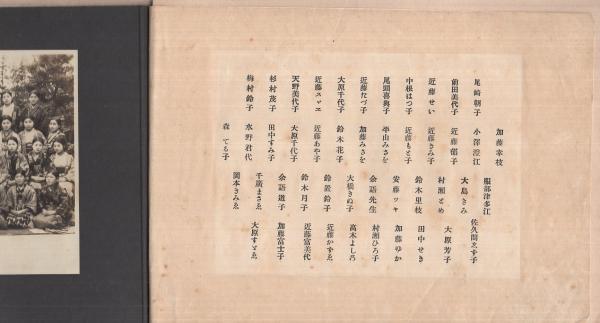 加藤幸枝
尾崎朝子
小澤澄江
服部津多江
佐久間ゑす子
前田美代子
近藤郁子
大島きみ
大原芳子
近藤せい
近藤きみ子
村瀬とめ
田中せき
中根はつ子
近藤もと子
鈴木里枝
加藤ゆか
尾頭喜與子
半山みさを
安藤ツヤ
村瀬ひろ子
近藤たづ子
加藤みさを
余語先生
高木よしの
大原千代子
鈴木花子
大橋きぬ子
近藤かずゑ
近藤スマヱ
近藤あや子
鈴置鈴子
近藤富美代
天野美代子
大原千代子
鈴木月子
加藤富士子
杉村茂子
田中すみ子
余語道子
大原すゞゑ
梅村鈴子
水野君代
千賀まさゑ
森てる子
岡本きみゑ